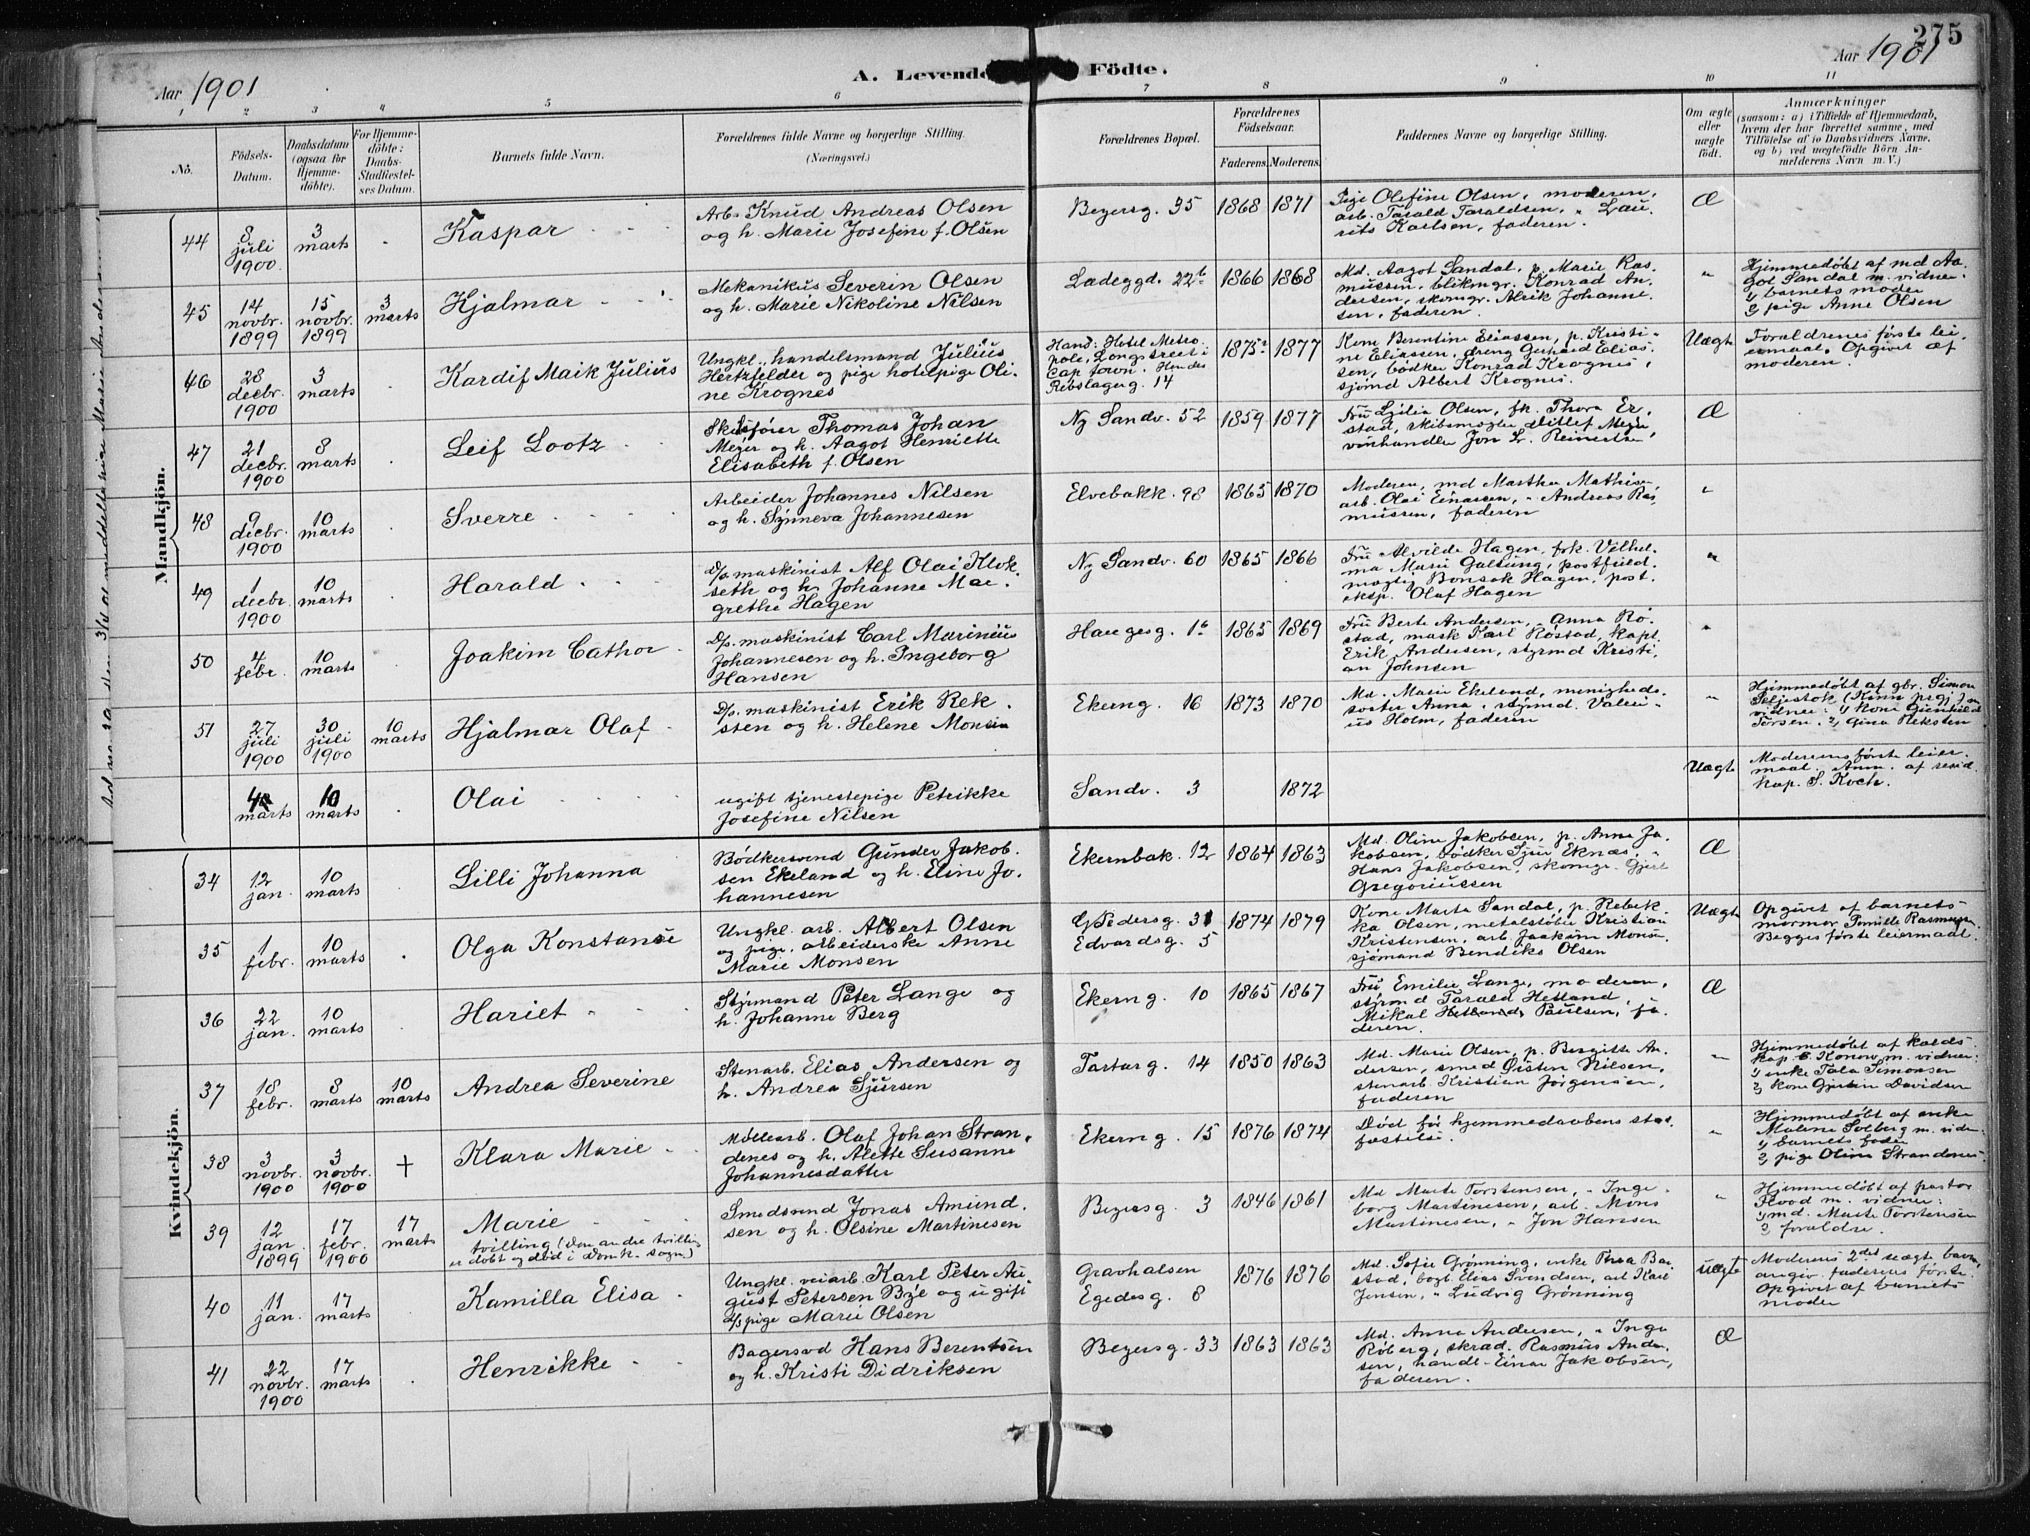 275
Aar 1901
A. Levende Födte.
Aar 1901
1 2 3 4 5 6 7 8 9 10 11
No.
Födsels-Datum.
Daabsdatum (ogsaa for Hjemme-döbte).
For Hjemme-döbte: Daabs-Stadfæstel-ses Datum.
Barnets fulde Navn.
Forældrenes fulde Navne og borgerlige Stilling.
(Næringsvei.)
Forældrenes Bopæl.
Forældrenes Födselsaar.
Faderens. Moderens.
Faddernes Navne og borgerlige Stilling.
Om ægte eller uægte födt.
Anmærkninger
(saasom: a) i Tilfælde af Hjemmedaab,
hvem der har forrettet samme, med
Tilföielse af to Daabsvidners Navne,
og b) ved uægtefödte Börn An-
melderens Navn m. V.)
Mandkjön.
44 8 juli 1900. 3 marts Kaspar
Arb. Knud Andreas Olsen
og h. Marie Josefine f. Olsen
Beyersg. 35 1868 1871
Pige Olefine Olsen, moderen,
arb. Tarald Taraldsen, " Lau-
rits Karlsen, faderen.
Æ
45 14 novbr. 1899 15 novbr. 1899 3 marts Hjalmar
Mekanikus Severin Olsen
og h. Marie Nikoline Nilsen
Ladeggd. 22b 1866 1868
Md. Aagot Sandal, p. Marie Ras-
mussen, blikmgr. Konrad An-
dersen, skomgr. Alrik Johanne-
sen, faderen.
"
Hjemmedøbt af md Aa-
got Sandal m. vidner:
1) barnets moder
2) pige Anne Olsen
46 28 decbr. 1900 3 marts Kardif Maik Julius
Ungkl., handelsmand Julius
Hertzfelder og pige hotelpige Oli-
ne Krognes
Hans: Hotel Metro-
pole, Longstreet i
Cap town. Hendes
Rebslagerg. 14
1875 1877
Kone Berentine Eliassen, p. Kristi-
ne Eliassen, dreng Gerhard Elias-
sen, bødker Konrad Krognes,
sjømd Albert Krognes.
Uægte
Forældrenes første lei-
ermaal. Opgivet af
moderen.
47 21 decbr. 1900 8 marts Leif Lootz
Skibsfører Thomas Johan
Meyer og h. Aagot Henriette
Elisabeth f. Olsen
Ny Sandv. 52 1859 1877
Fru Lydia Olsen, frk. Thora Er-
stad, skibsmægler Ditlef Meyer,
vinhandler Jon L. Reinertsen
Æ
48 9 decbr. 1900 10 marts Sverre
Arbeider Johannes Nilsen
og h. Synneva Johannesen
Elvebakk. 98 1865 1870
Moderen, md Martha Mathisen,
arb. Olai Einassen, " Andreas Ras-
mussen, faderen
"
49 1 decbr. 1900 10 marts Harald
D/s maskinist Alf Olai Klok-
seth og h. Johanne Mar-
grethe Hagen
Ny Sandv. 60 1865 1866
Fru Alvilde Hagen, frk. Vilhel-
ma Marie Galtung, postfuld-
mægtig Bonsak Hagen, post-
eksp. Olaf Hagen
"
50 4 febr. 10 marts Joakim Cathor
D/s. maskinist Carl Marinius
Johannesen og h. Ingeborg
Hansen
Haugesg. 1b 1865 1869
Fru Berte Andersen, " Anna Rø-
stad, mask Karl Røstad, kapt.
Erik Andersen, styrmd Kristi-
an Johnsen
"
51 27 juli 1900 30 juli 1900 10 marts Hjalmar Olaf
D/s. maskinist Erik Rek-
sten og h. Helene Monsen
Ekerng. 16 1873 1870
Md. Marie Ekeland, menigheds-
søster Anna, styrmd. Valeri-
us Holm, faderen
"
Hjemmedøbt af gbr. Simon
(Kinn psgj) m.
vidner: 1) kone Gunhild
Torsen. 2) Gina Reksten
marts 10 marts Olai
ugift tjenestepige Petrikke
Josefine Nilsen
Sandv. 3 1872
Uægte
Moderens første leier-
maal. Anm. af resid.
kap. S. Koch.
Kvindekjön.
34 12 jan. 10 marts Lilli Johanna
Bødkersvend Gunder Jakob-
sen Ekeland og h. Eline Jo-
hannesen
Ekernbak. 12 1864 1863
Md. Oline Jakobsen, p. Anna Ja-
kobsen, bødker Sjur Eknæs, "
Hans Jakobsen, skomgr. Gjert
Gregoriussen
Æ
35 1 febr. 10 marts Olga Konstanse
Ungkl. arb. Albert Olsen
og pige, arbeiderske Anne
Marie Monsen
Pedersg. 31
Edvardsg. 5
1874 1879
Kone Marta Sandal, p. Rebek-
ka Olsen, metalstøber Kristian
Kristensen, arb. Joakim Monsen
sjømand Bendiks Olsen
Uægte
Opgivet af barnets
mormor Pernille Rasmussen
Begges første leiermaal.
36 22 jan. 10 marts Hariet
Styrmand Peter Lange og
h. Johanne Berg
Ekerng. 10 1865 1867
Fru Emilie Lange, moderen,
styrmd Tarald Hetland,
Mikal Hetland, Paulsen, fa-
deren.
Æ
37 18 febr. 8 marts 10 marts Andrea Severine
Stenarb. Elias Andersen og
h. Andrea Sjursen
Tartarg. 14 1850 1863
Md. Marie Olsen, p. Bergitte An-
dersen, smed Øisten Nilsen,
stenarb. Kristian Jørgensen,
faderen
"
Hjemmedøbt af kalds-
kap. C. Konow m. vidner:
1) enke Tala Simonsen
2) kone Gjertin Davidsen
38 3 novbr. 1900 3 novbr. 1900 + Klara Marie
Møllearb. Olaf Johan Stran-
denes og h. Alette Susanne
Johannesdatter
Ekerng. 15 1876 1874
Død før hjemmedaabens stad-
fæstelse.
"
Hjemmedøbt af enke
Maline Solberg m. vidn-
1) barnets fader
2) pige Olina Strandenes
39 12 jan. 1899 17 febr. 1900 17 marts Marie
tvilling (den andre tvilling
er døbt og død i Domk. sogn)
Smedsvend Jonas Amund-
sen og h. Olsine Martinesen
Beyersg. 3 1846 1861
Md Marte Torstensen, " Inge-
borg Martinesen, arb. Mons
Martinesen, " Jon Hansen
"
Hjemmedøbt af pastor
Flood m. vidner:
1) md. Marte Torstensen
2) forældre.
40 11 jan. 17 marts Kamilla Elisa
Ungkl. veiarb. Karl Peter Au-
gust Petersen Bye og ugift
pige Marie Olsen
Gravhalsen
Egedesg. 8
1876 1876
Md. Sofie Grønning, enke Thea Bar-
stad, bogt. Elias Svendsen, arb Karl
Jensen, " Ludvig Grønning
uægte
Moderens 2det uægte barn,
angiv. faderens første.
Opgivet af barnets
moder
41 22 novbr. 1900 17 marts Henrikke
Bagersvd Hans Berentsen
og h. Kristi Didriksen
Beyersg. 33 1863 1863
Md. Anna Andersen, " Inga
Røberg, skræd. Rasmus Ander-
sen, handl. Einar Jakobsen,
faderen.
Æ